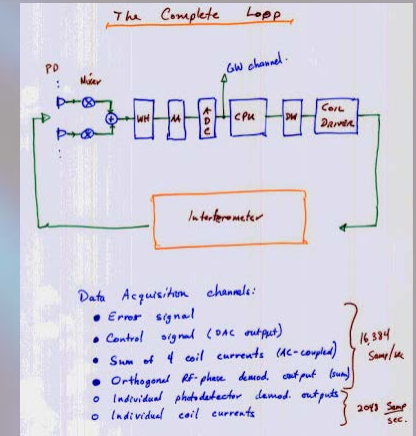 The Complete Loop
GW channel.
PD
Mixer
WH
AA
ADC
CPU
DW
COIL
DRIVER
Interferometer
Data Acquisition channels:
Error signal
Control signal (DAC output)
Sum of 4 coil currents (AC-coupled)
Orthogonal RF-phase demod. output (sum)
Individual photodetector demod. outputs
Individual coil currents
16,384
Samp/sec
2048 Samp
sec.